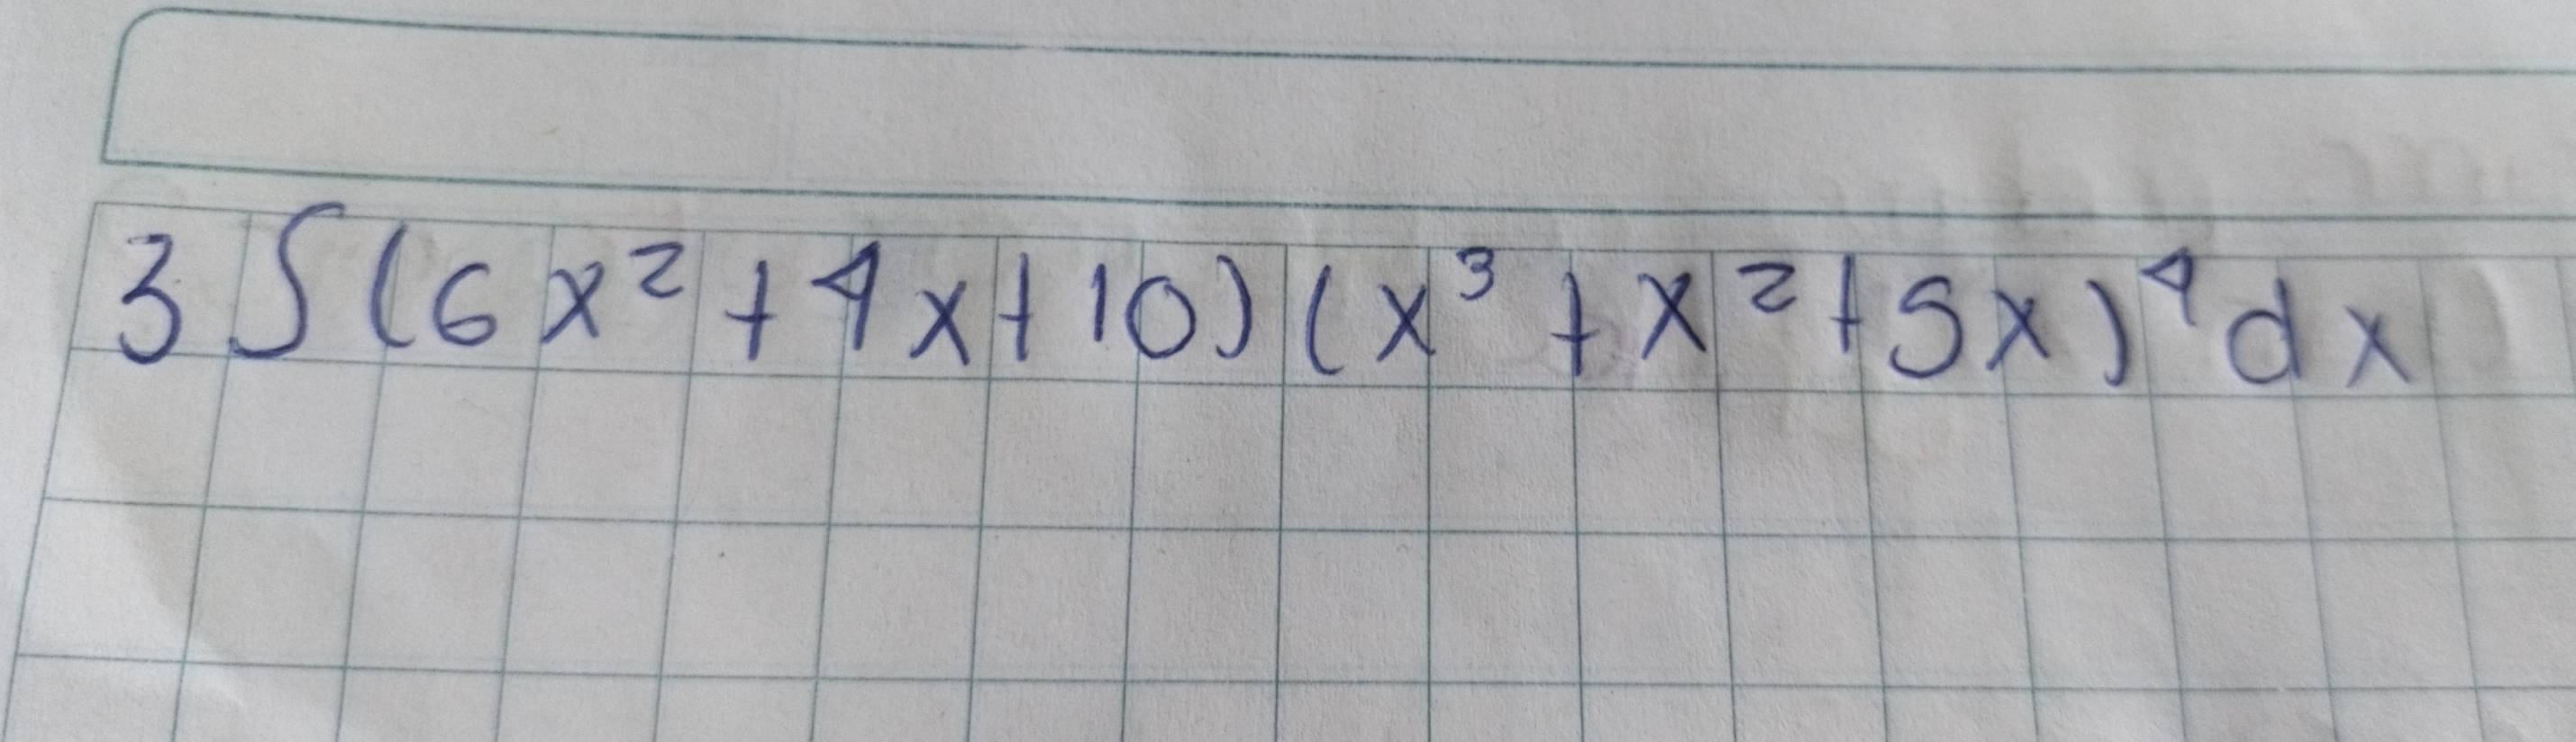 3 ∫(6x²+4x+10)(x³+x²+5x)⁴dx